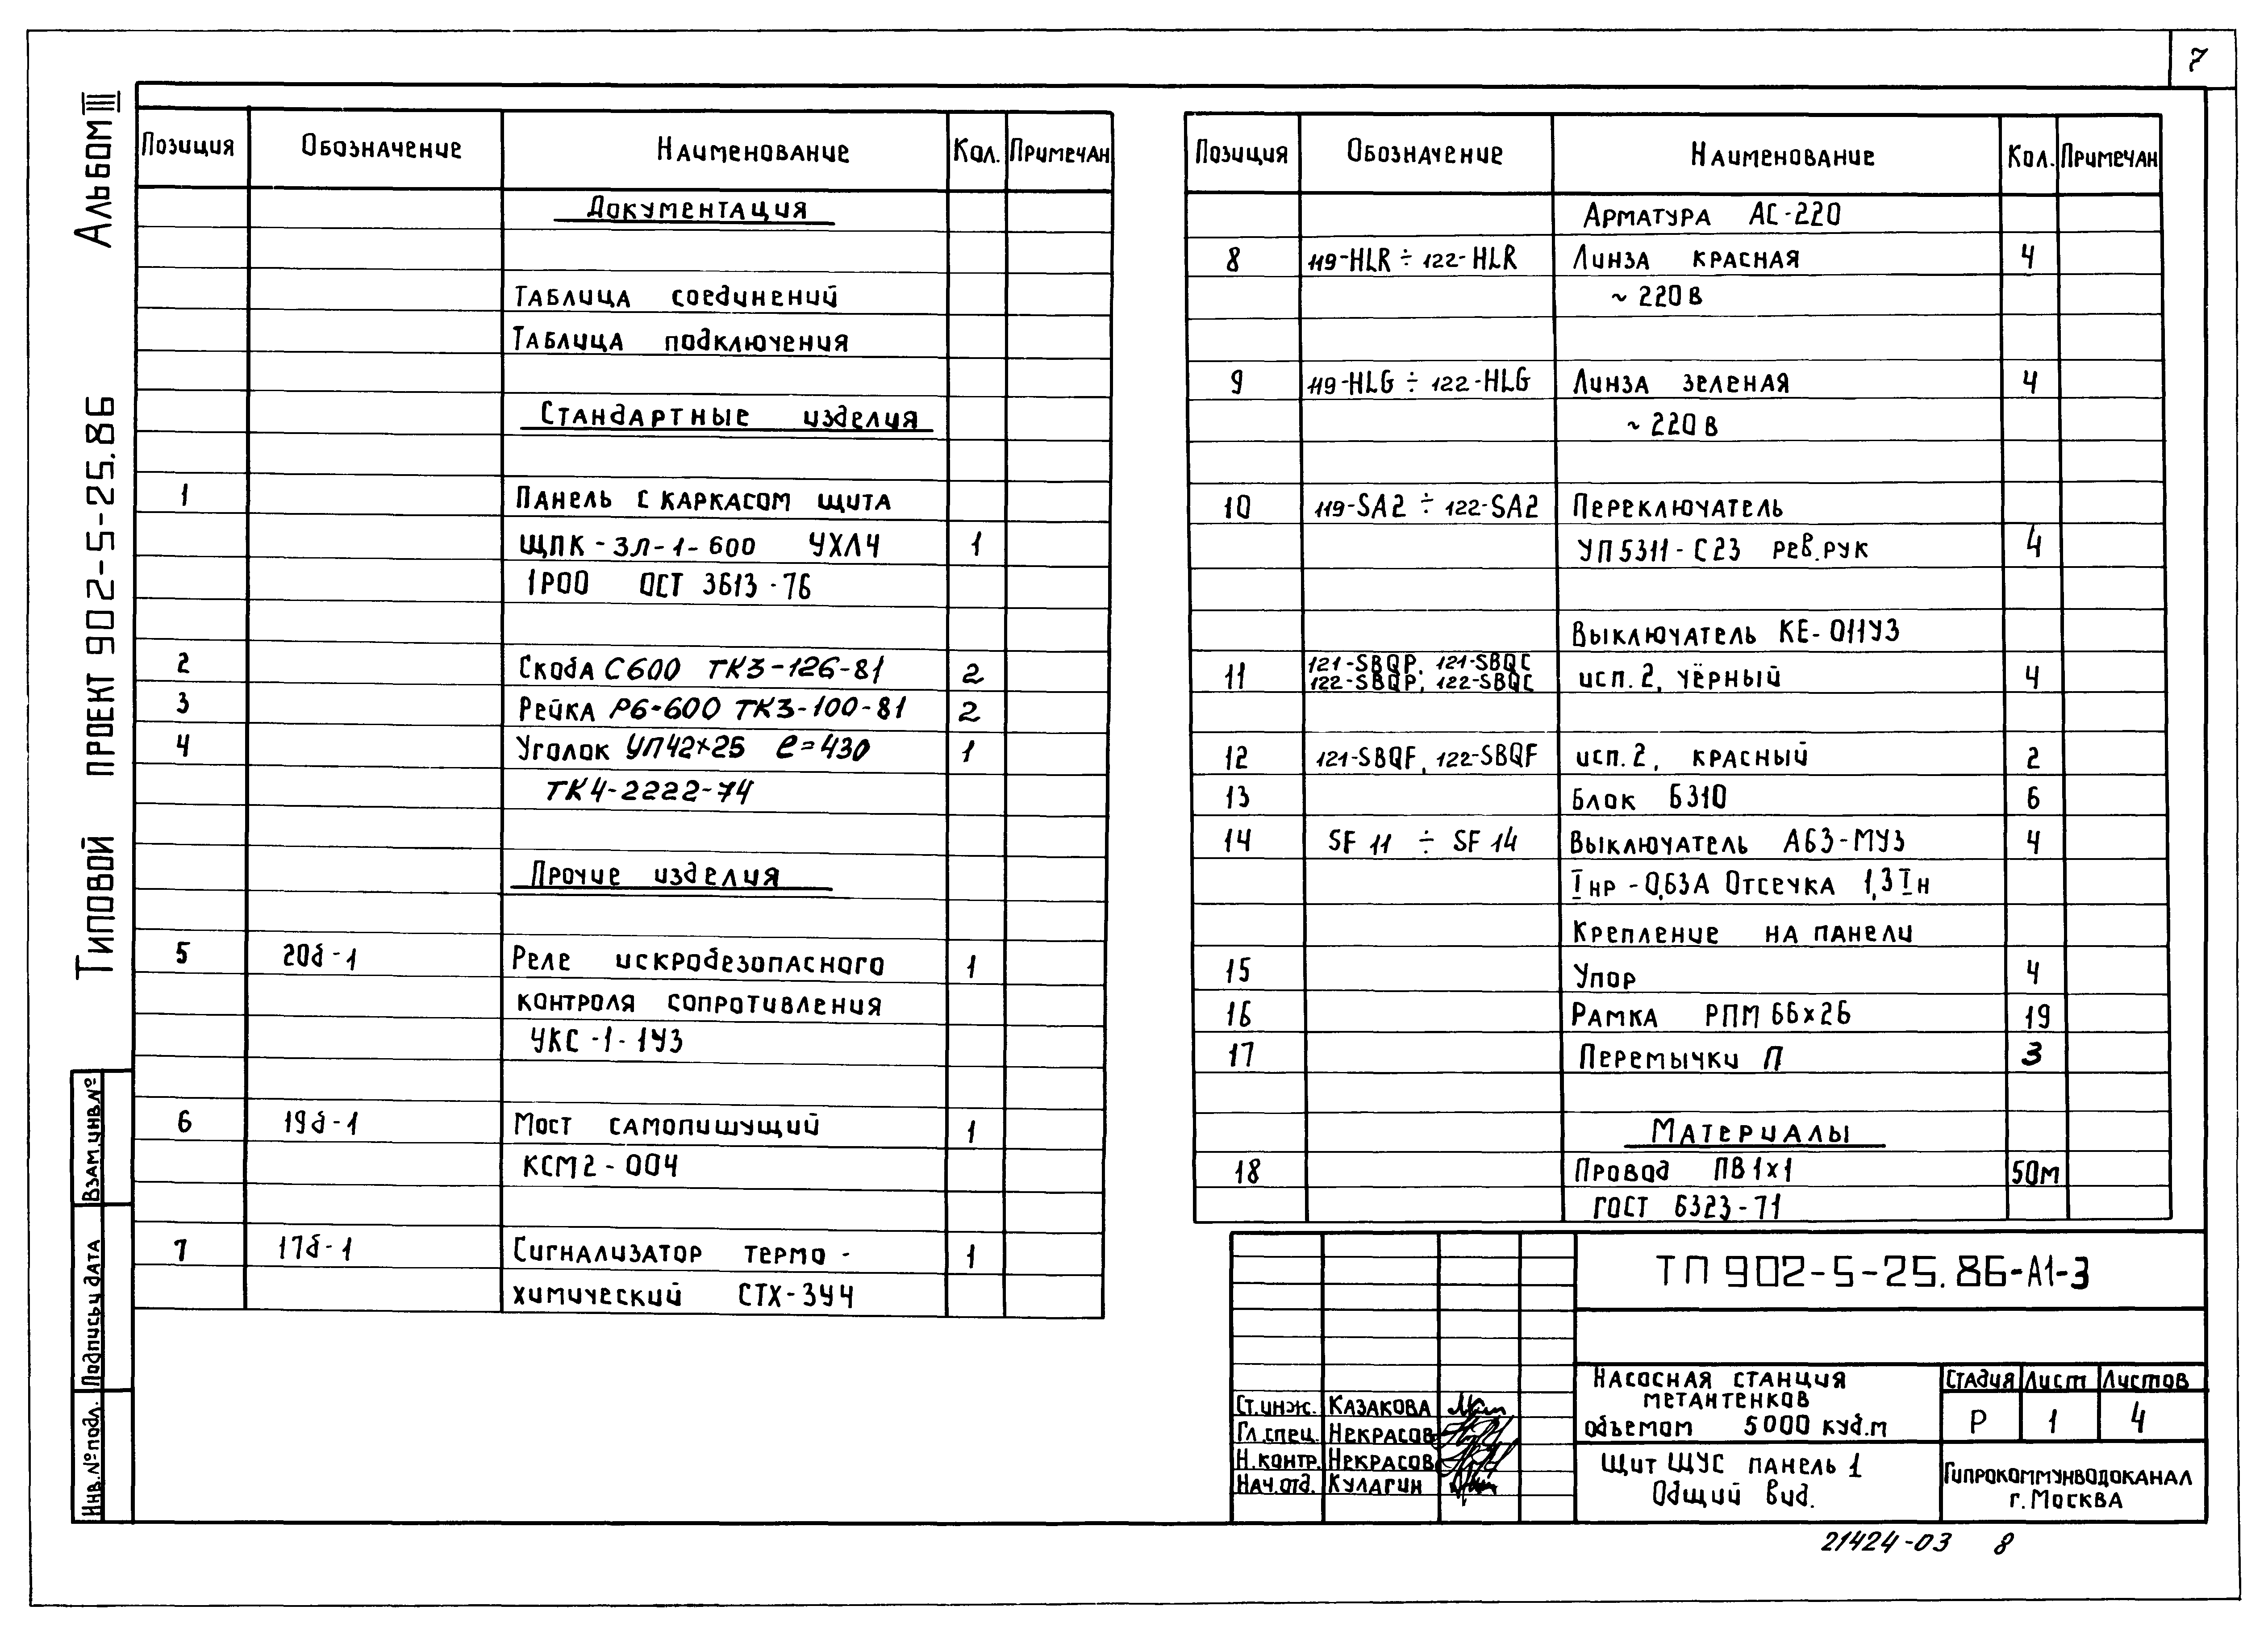 7
Альбом III
Типовой проект 902-5-25.86
Позиция Обозначение Наименование Кол. Примечан
Документация
Таблица соединений
Таблица подключения
Стандартные изделия
1 Панель с каркасом щита
ЩПК-ЗЛ-1-600 УХЛ4 1
1Р00 ОСТ 3613-76
2 Скоба С600 ТК3-126-81 2
3 Рейка Р6-600 ТК3-100-81 2
4 Уголок УП42×25 ℓ=430 1
ТК4-2222-74
Прочие изделия
5 20б-1 Реле искробезопасного 1
контроля сопротивления
УКС-1-1У3
6 19б-1 Мост самопишущий 1
КСМ2-004
7 17б-1 Сигнализатор термо- 1
химический СТХ-3У4
Позиция Обозначение Наименование Кол. Примечан
Арматура АС-220
8 119-HLR ÷ 122-HLR Линза красная 4
~ 220 В
9 119-HLG ÷ 122-HLG Линза зеленая 4
~ 220 В
10 119-SA2 ÷ 122-SA2 Переключатель
УП5311-С23 рев.рук 4
Выключатель КЕ-011У3
11 121-SBQP, 121-SBQC
122-SBQP, 122-SBQC исп.2, чёрный 4
12 121-SBQF, 122-SBQF исп.2, красный 2
13 Блок Б310 6
14 SF 11 ÷ SF 14 Выключатель А63-МУ3 4
Iнр-0,63А Отсечка 1,3Iн
Крепление на панели
15 Упор 4
16 Рамка РПМ 66×26 19
17 Перемычки П 3
Материалы
18 Провод ПВ1×1 50м
ГОСТ 6323-71
ТП 902-5-25.86-А1-3
Насосная станция
метантенков
объемом 5000 куб.м
Стадия Лист Листов
Р 1 4
Щит ЩУС панель 1
Общий вид.
Гипрокоммунводоканал
г. Москва
Ст.инж. Казакова
Гл.спец. Некрасов
Н.контр. Некрасов
Нач.отд. Кулагин
Взам.инв.№
Подпись и дата
Инв.№ подл.
21424-03 8